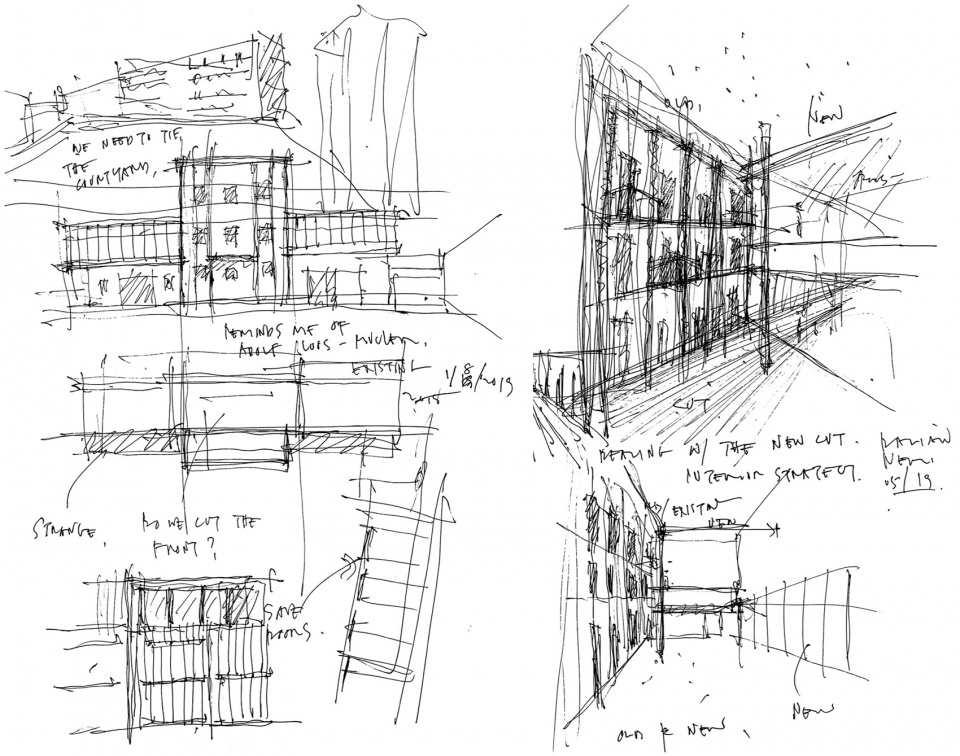 WE NEED TO TIE
THE
COURTYARD,
REMINDS ME OF
ADOLF LOOS - MULLER.
EXISTING
1/8/2019
STRANGE.
DO WE CUT THE
FRONT?
SAVE
DOORS.
OLD.
NEW
CUT
DEALING W/ THE NEW CUT.
INTERIOR STRATEGY.
05/19.
EXISTING
NEW
NEW
OLD & NEW.